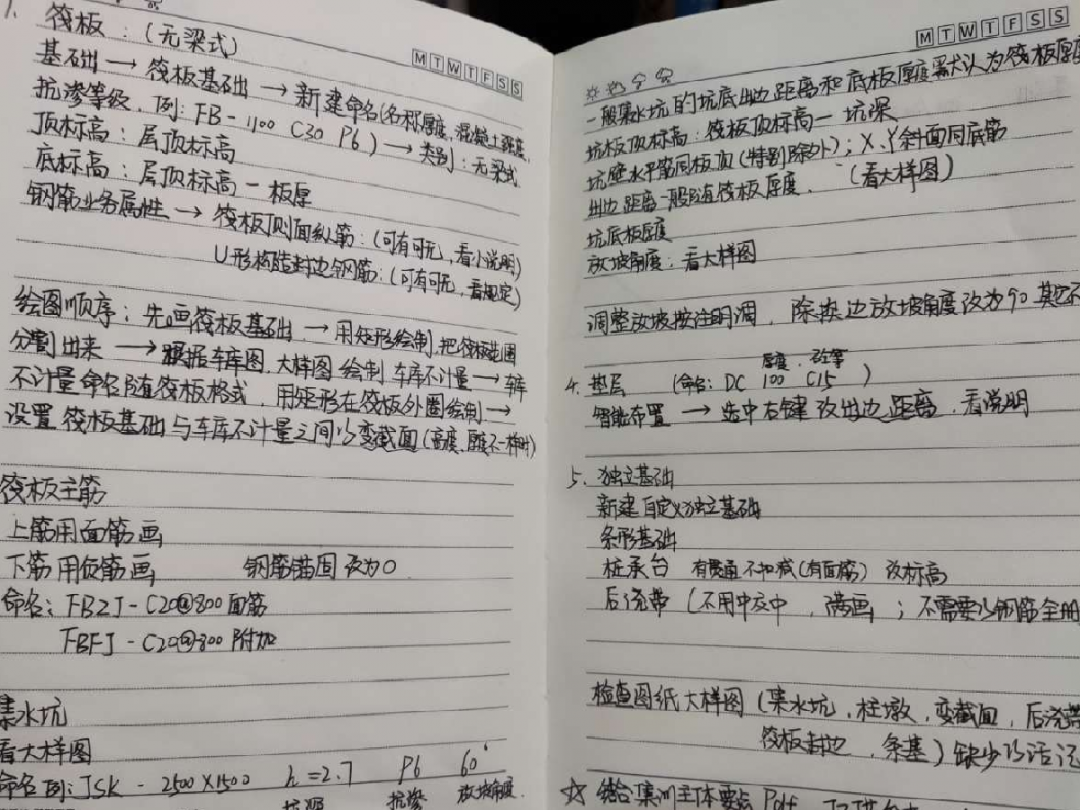 1. 筏板：（无梁式）
MTWTFSS
基础 → 筏板基础 → 新建命名(名称厚度、混凝土强度、
抗渗等级，例：FB-1100 C30 P6) → 类别：无梁式
顶标高：层顶标高
底标高：层顶标高 - 板厚
钢筋业务属性 → 筏板侧面纵筋：(可有可无，看小说明)
U形构造封边钢筋：(可有可无，看规定)
绘图顺序：先画筏板基础 → 用矩形绘制 把筏板范围
分割出来 → 根据车库图、大样图 绘制 车库不计量 → 车库
不计量 命名随筏板格式，用矩形在筏板外圈绘制 →
设置 筏板基础与车库不计量之间 变截面 (高度、厚度不一样时)
筏板主筋
上筋用面筋画
下筋用负筋画 钢筋锚固 改为0
命名：FBZJ - C20@300 面筋
FBFJ - C20@300 附加
集水坑
看大样图
命名 例：JSK - 2500×1500 h=2.7 P6 60°
坑深 抗渗 放坡角度
MTWTFSS
一般集水坑的坑底出边距离和底板厚度默认为筏板厚度
坑板顶标高：筏板顶标高 - 坑深
坑壁水平筋同板面(特别除外)；X、Y斜面同底筋
出边距离一般随筏板厚度．（看大样图）
坑底板厚度
放坡角度：看大样图
调整放坡按注明调，除换边放坡角度改为90 其它不
厚度、砼等
4. 垫层 （命名：DC 100 C15 ）
智能布置 → 选中右键 改出边距离，看说明
5. 独立基础
新建自定义独立基础
条形基础
桩承台 有贯通 不扣减(有面筋) 改标高
后浇带（不用中交中，满画；不需要 钢筋全册
检查图纸大样图（集水坑、柱墩、变截面、后浇带
筏板封边、条基）缺少 活
☆ 结合 主体要点 Pdf